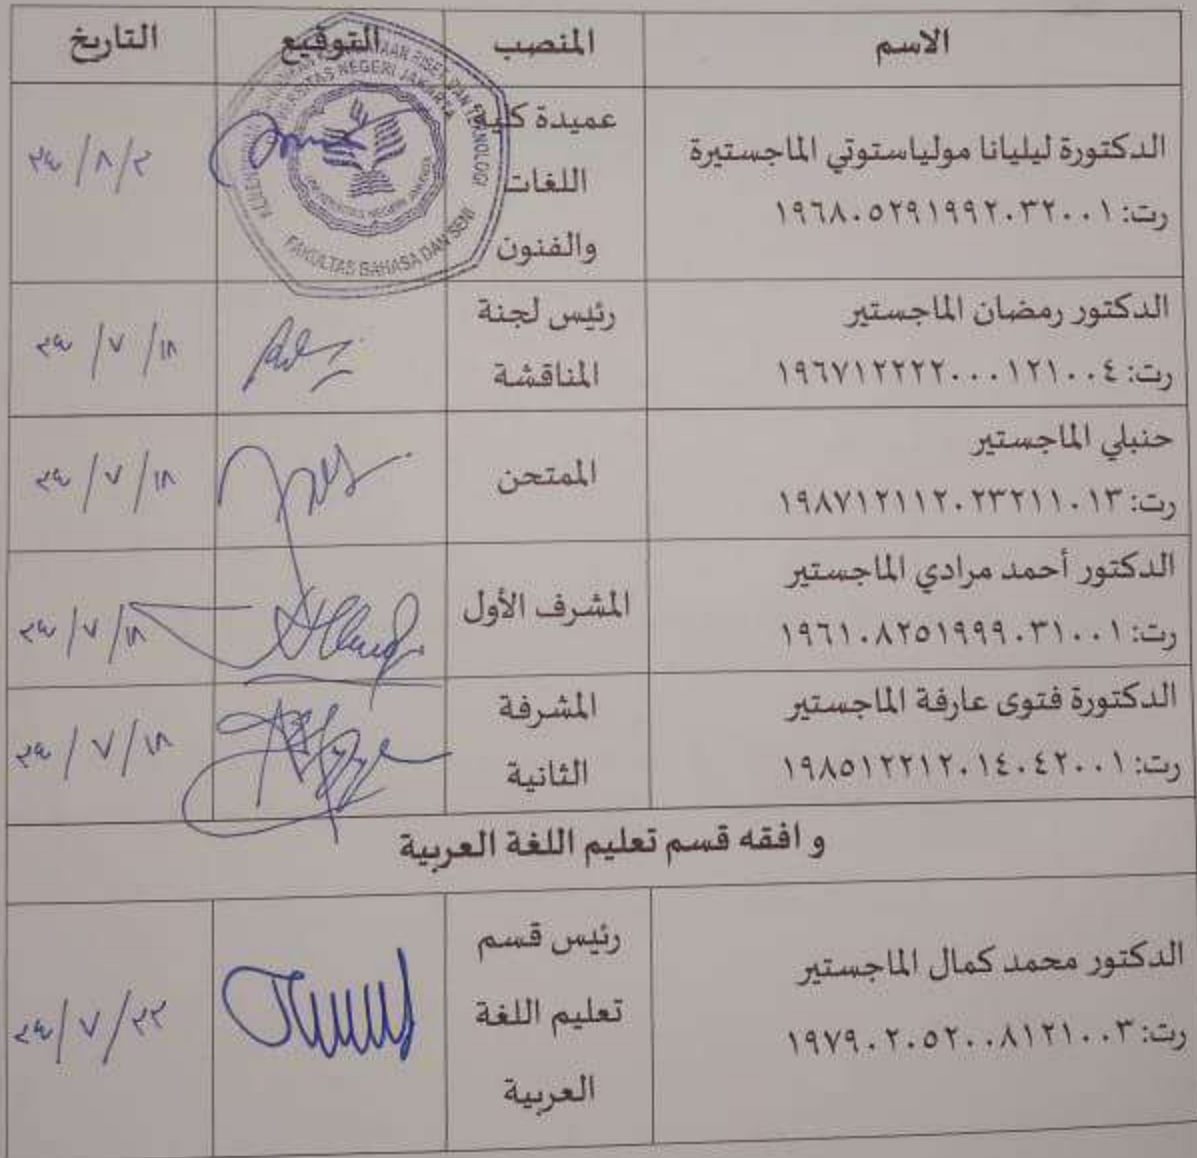 الاسم المنصب التوقيع التاريخ
الدكتورة ليليانا مولياستوتي الماجستيرة
رت: ١٩٦٨٠٥٢٩١٩٩٢٠٣٢٠٠١
عميدة كلية
اللغات
والفنون
UNIVERSITAS NEGERI JAKARTA
FAKULTAS BAHASA DAN SENI
٢/٨/٢٤
الدكتور رمضان الماجستير
رت: ١٩٦٧١٢٢٢٢٠٠٠١٢١٠٠٤
رئيس لجنة
المناقشة
١٨/٧/٢٤
حنبلي الماجستير
رت: ١٩٨٧١٢١١٢٠٢٣٢١١٠١٣
الممتحن
١٨/٧/٢٤
الدكتور أحمد مرادي الماجستير
رت: ١٩٦١٠٨٢٥١٩٩٩٠٣١٠٠١
المشرف الأول
١٨/٧/٢٤
الدكتورة فتوى عارفة الماجستير
رت: ١٩٨٥١٢٢١٢٠١٤٠٤٢٠٠١
المشرفة
الثانية
١٨/٧/٢٤
و افقه قسم تعليم اللغة العربية
الدكتور محمد كمال الماجستير
رت: ١٩٧٩٠٢٠٥٢٠٠٨١٢١٠٠٣
رئيس قسم
تعليم اللغة
العربية
٢٢/٧/٢٤